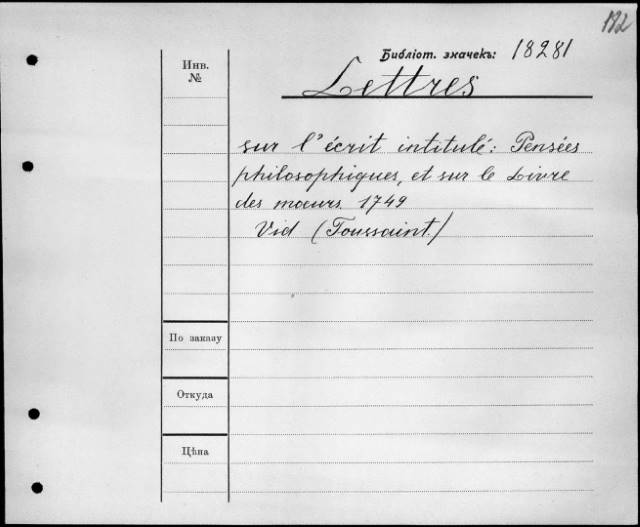 192
Библіот. значекъ: 18281
Инв.
№
Lettres
sur l'écrit intitulé: Pensées
philosophiques, et sur le Livre
des mœurs. 1749
Vid (Toussaint)
По заказу
Откуда
Цѣна